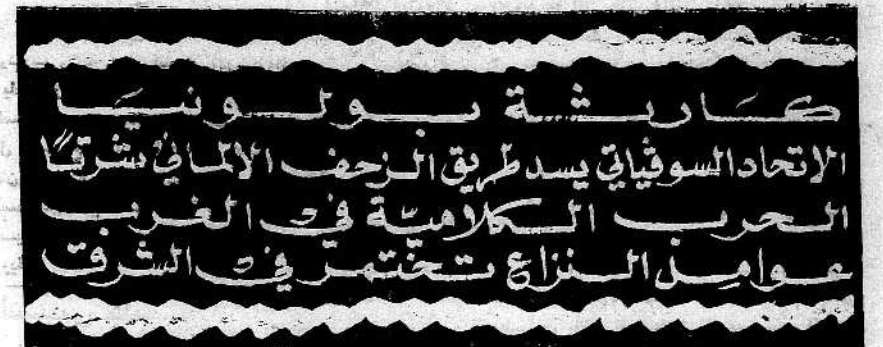 كارثة بولونيا
الاتحاد السوڤياتي يسد طريق الزحف الالماني شرقاً
الحرب الكلاميّة في الغرب
عوامل النزاع تختمر في الشرق